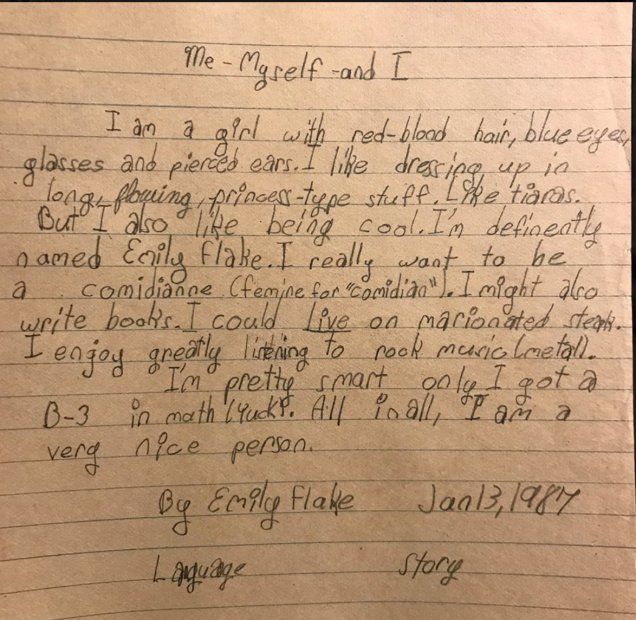 Me-Myself-and I
I am a girl with red-blond hair, blue eyes,
glasses and pierced ears. I like dressing up in
long, flowing, princess-type stuff. Like tiaras.
But I also like being cool. I'm definently
named Emily Flake. I really want to be
a comidianne (femine for "comidian"). I might also
write books. I could live on marionated steak.
I enjoy greatly listning to rock music (metal).
I'm pretty smart only I got a
B-3 in math (yuck). All in all, I am a
very nice person.
By Emily Flake Jan 13, 1987
Language Story